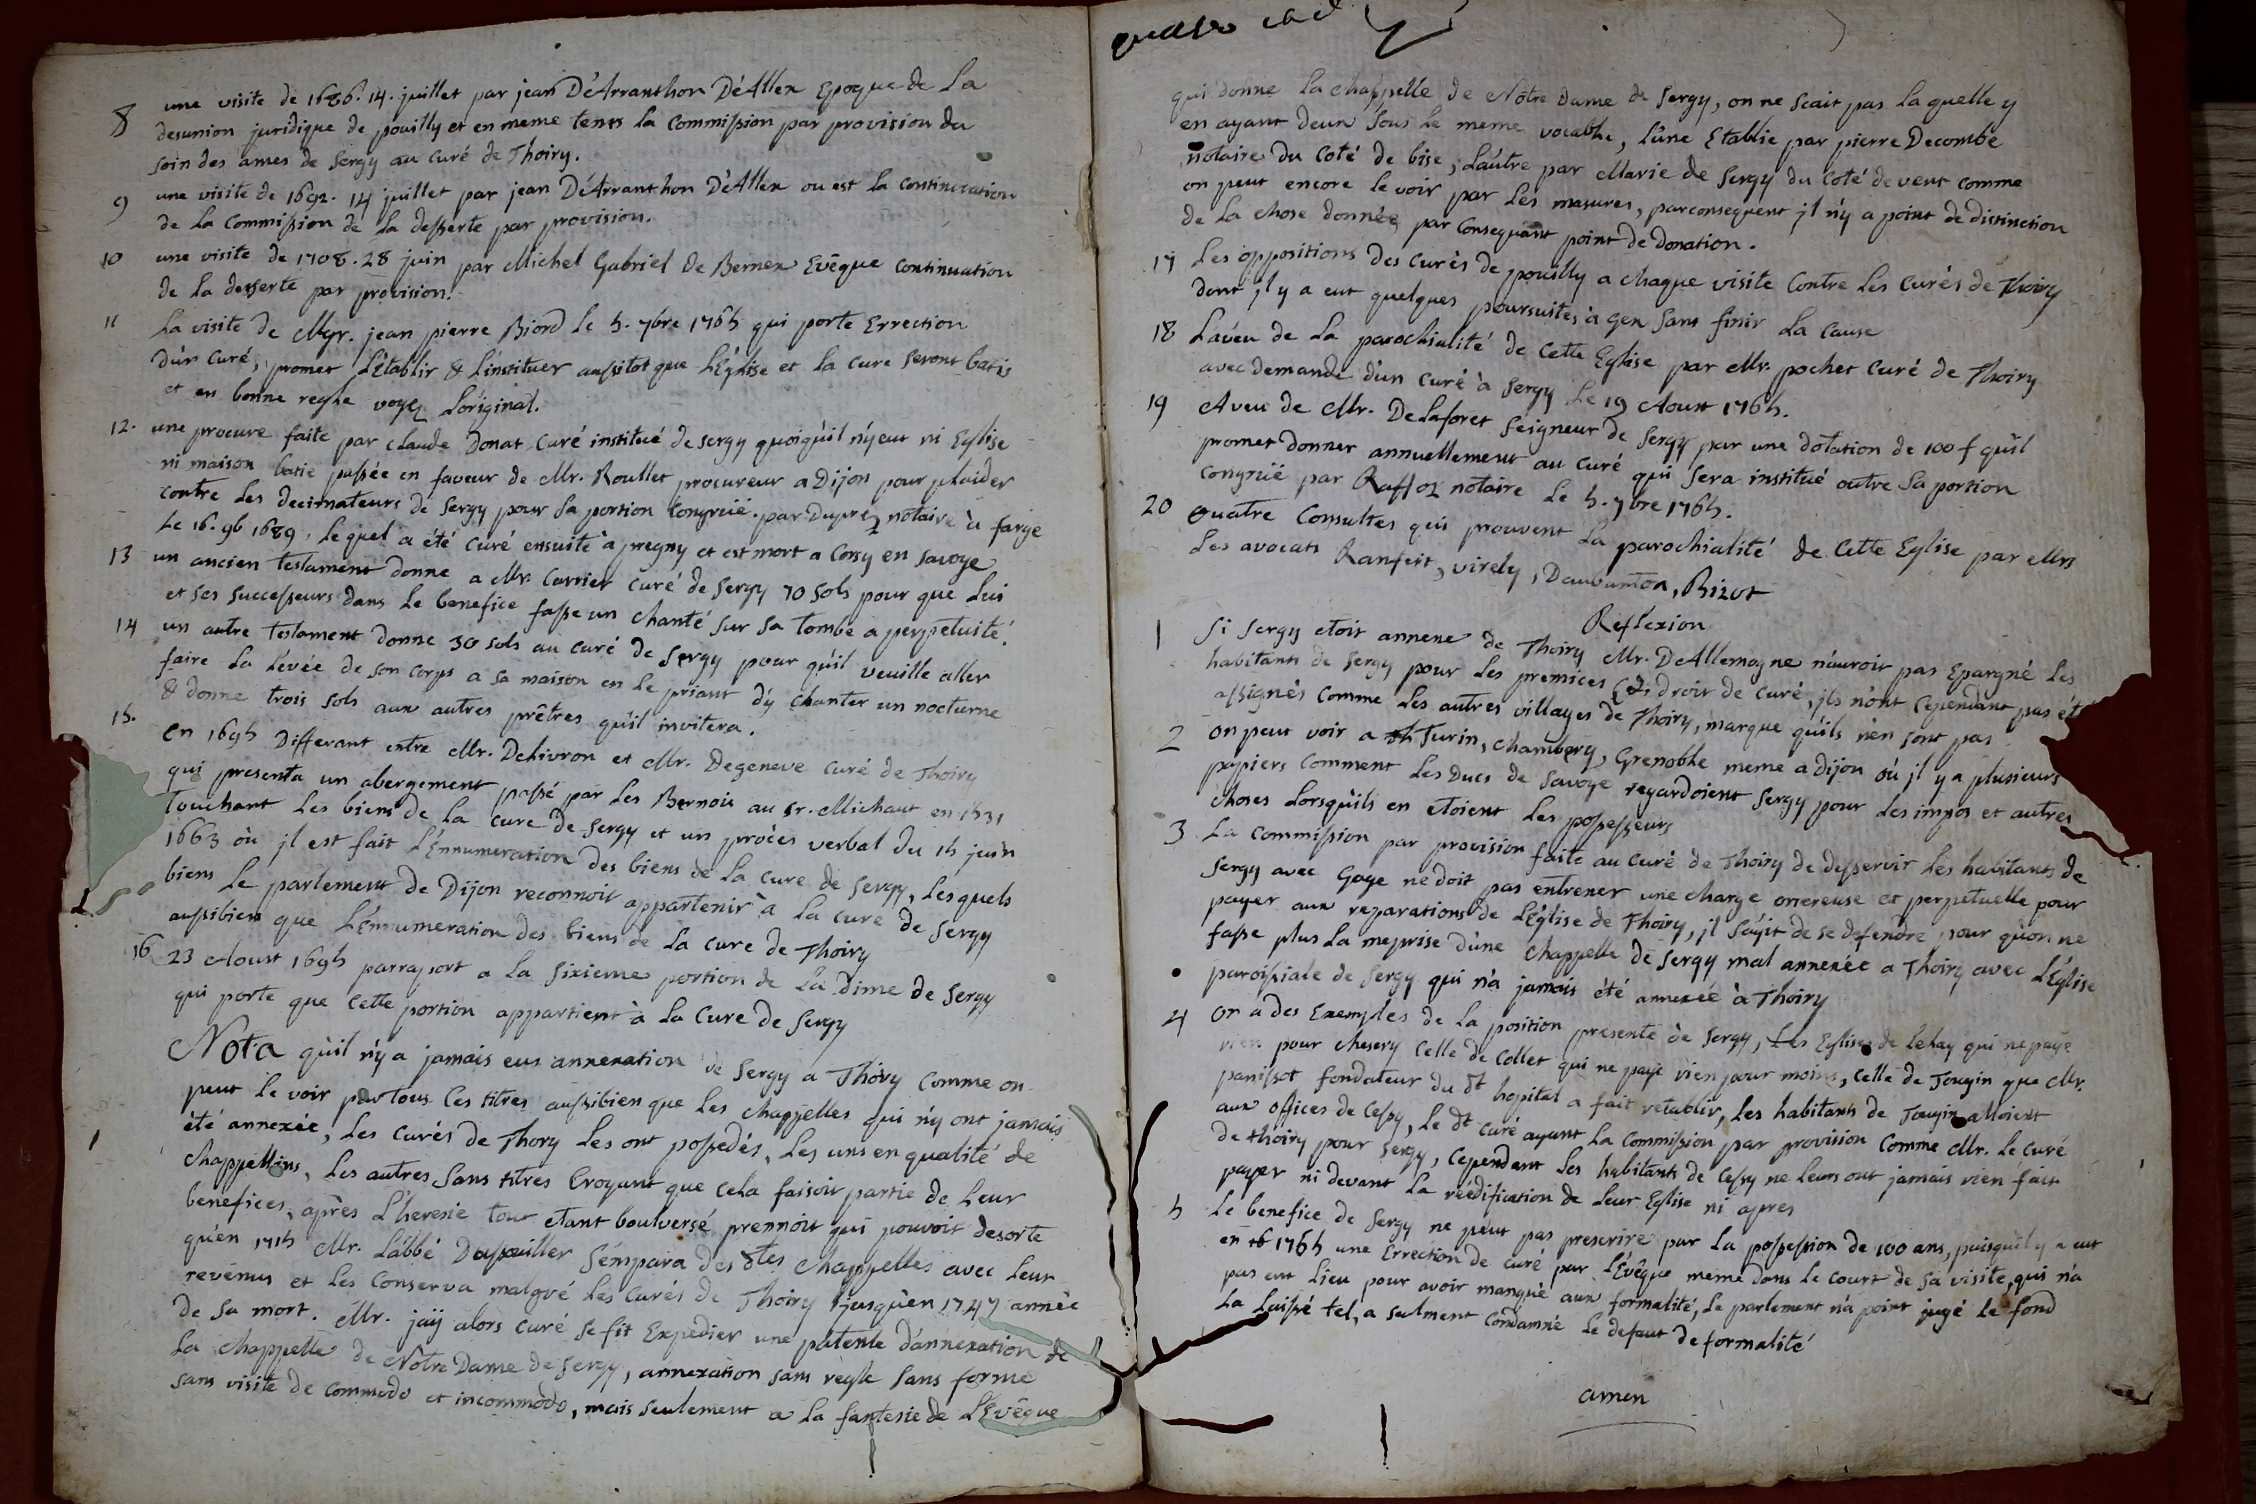 8 une visite de 1686. 14. juillet par jean D'Arranthon D'Allex Epoque de La
desunion juridique de pouilly et en meme tems la Commission par provision du
soin des ames de Sergy au curé de Thoiry.
9 une visite de 1692. 14 juillet par jean D'Arranthon D'Allex ou est la continuation
de la Commission de la desserte par provision.
10 une visite de 1708. 28 juin par Michel Gabriel de Bernex Evêque continuation
de la desserte par provision.
11 La visite de Mgr. jean pierre Biord le 5. 7bre 1765 qui porte Errection
d'un Curé, promet L'Etablir & L'instituer aussitot que L'Eglise et la cure seront batis
et en bonne regle voyez L'original.
12. une procure faite par claude Donat Curé institué de sergy quoiqu'il n'y eut ni Eglise
ni maison batie passée en faveur de Mr. Roullet procureur a Dijon pour plaider
contre les decimateurs de Sergy pour sa portion Congruë. par Duprez notaire à farge
Le 16. 9b 1689. Lequel a été curé ensuite à pregny et est mort a Corsy en savoye
13 un ancien testament donne a Mr. Carrier Curé de Sergy 70 sols pour que Lui
et ses successeurs dans le benefice fasse un chanté sur sa tombe a perpetuité.
14 un autre testament donne 30 sols au curé de Sergy pour qu'il veuille aller
faire La Levée de son corps a sa maison en le priant d'y chanter un nocturne
& donne trois sols aux autres prêtres qu'il invitera.
15. en 1695 Differant entre Mr. Delivron et Mr. Degeneve curé de Thoiry
qui presenta un abergement passé par les Bernois au Sr. Michaut en 1531
Touchant les biens de la cure de Sergy et un procès verbal du 15 juin
1663 où jl est fait L'Ennumeration des biens de La cure de Sergy, Lesquels
biens le parlement de Dijon reconnoit appartenir à La cure de Sergy
aussibien que L'Ennumeration des biens de La cure de Thoiry
16 23 Aoust 1695 parraport a La Sixieme portion de La Dime de Sergy
qui porte que cette portion appartient à La Cure de Sergy
Nota qu'il n'y a jamais eus annexation de Sergy a Thoiry comme on
peut le voir par tous les titres aussibien que les chappelles qui n'y ont jamais
été annexée, Les curés de Thoiry les ont possedés, Les uns en qualité de
Chappellins, Les autres Sans titres Croyant que cela faisoit partie de Leur
benefices, après L'heresie tout etant boulversé prennoit qui pouvoit desorte
qu'en 1715 Mr. L'abbé Dapouiller S'empara des dtes Chappelles avec leur
revenus et les conserva malgré les curés de Thoiry jusqu'en 1747 année
de Sa mort. Mr. jaÿ alors curé se fit Expedier une patente d'annexation de
La chappelle de Nôtre Dame de Sergy, annexation sans regle sans forme
sans visite de commodo et incommodo, mais seulement a La fantesie de L'Evêque
qui donne La chappelle de Nôtre Dame de Sergy, on ne scait pas la quelle y
en ayant deux Sous le meme vocable, L'une Etablie par pierre Decombe
notaire du Coté de bise, L'autre par Marie de Sergy du coté de vent comme
on peut encore le voir par Les masures, parconsequent jl n'y a point de distinction
de La chose donnée par Consequant point de Donation.
17 Les oppositions des curés de pouilly a chaque visite contre les curés de Thoiry
dont jl y a eut quelques poursuites à gex sans finir La Cause
18 L'aveu de La parochialité de cette Eglise par Mr. pochet curé de Thoiry
avec demande d'un Curé à Sergy Le 19 Aoust 1765.
19 Aveu de Mr. Delaforet Seigneur de Sergy par une dotation de 100 f qu'il
promet donner annuellement au curé qui sera institué outre Sa portion
Congruë par Raffoz notaire Le 5. 7bre 1765.
20 Quatre Consultes qui prouvent La parochialité de cette Eglise par Mrs
Les avocats Ranfert, virely, Daubanton, Bizot
Reflexion
1 Si Sergy etoit annexe de Thoiry Mr. DeAllemogne n'auroit pas Epargné Les
habitants de Sergy pour Les premices ces droit de curé, jls n'ont cependant pas ét
assignés comme les autres villages de Thoiry, marque qu'ils n'en sont pas
2 on peut voir a Turin, Chambery, Grenoble meme a Dijon où jl y a plusieurs
papiers comment Les Ducs de Savoye regardoient Sergy pour les impos et autres
choses Lorsqu'ils en etoient Les possesseurs
3 La commission par provision faite au curé de Thoiry de desservir Les habitants de
Sergy avec Gage ne doit pas entrener une charge onereuse et perpetuelle pour
payer aux reparations de L'Eglise de Thoiry, jl s'agit de se defendre pour qu'on ne
fasse plus La meprise d'une chappelle de Sergy mal annexée a Thoiry avec L'Eglise
paroissiale de Sergy qui n'a jamais été annexée à Thoiry
4 on a des Exemples de La position presente de Sergy, Les Eglises de Lelay qui ne paye
rien pour chesery celle de Collet qui ne paye rien pour moins, celle de Tougin que Mr.
panissot fondateur du dt hopital a fait retablir, Les habitants de Tougin alloient
aux offices de Cessy, Le dt curé ayant La commission par provision comme Mr. le curé
de thoiry pour Sergy, cependant les habitants de Cessy ne leurs ont jamais rien fait
payer ni devant La reédification de leur Eglise ni apres
5 Le benefice de Sergy ne peut pas prescrire par La possession de 100 ans, puisqu'il y a eut
en 1765 une Errection de curé par L'Evêque meme dans le court de sa visite, qui n'a
pas eut Lieu pour avoir manqué aux formalité, Le parlement n'a point jugé le fond
La Laissé tel, a sulment condamné le defaut de formalité
amen